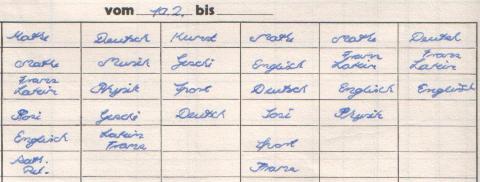 vom 10.2. bis
Mathe Deutsch Kunst Mathe Mathe Deutsch
Mathe Musik Geschi Englisch Franz Latein Franz Latein
Franz Latein Physik Sport Deutsch Englisch Englisch
Sozi Geschi Deutsch Sozi Physik
Englisch Latein Franz Sport
Kath. Rel. Franz